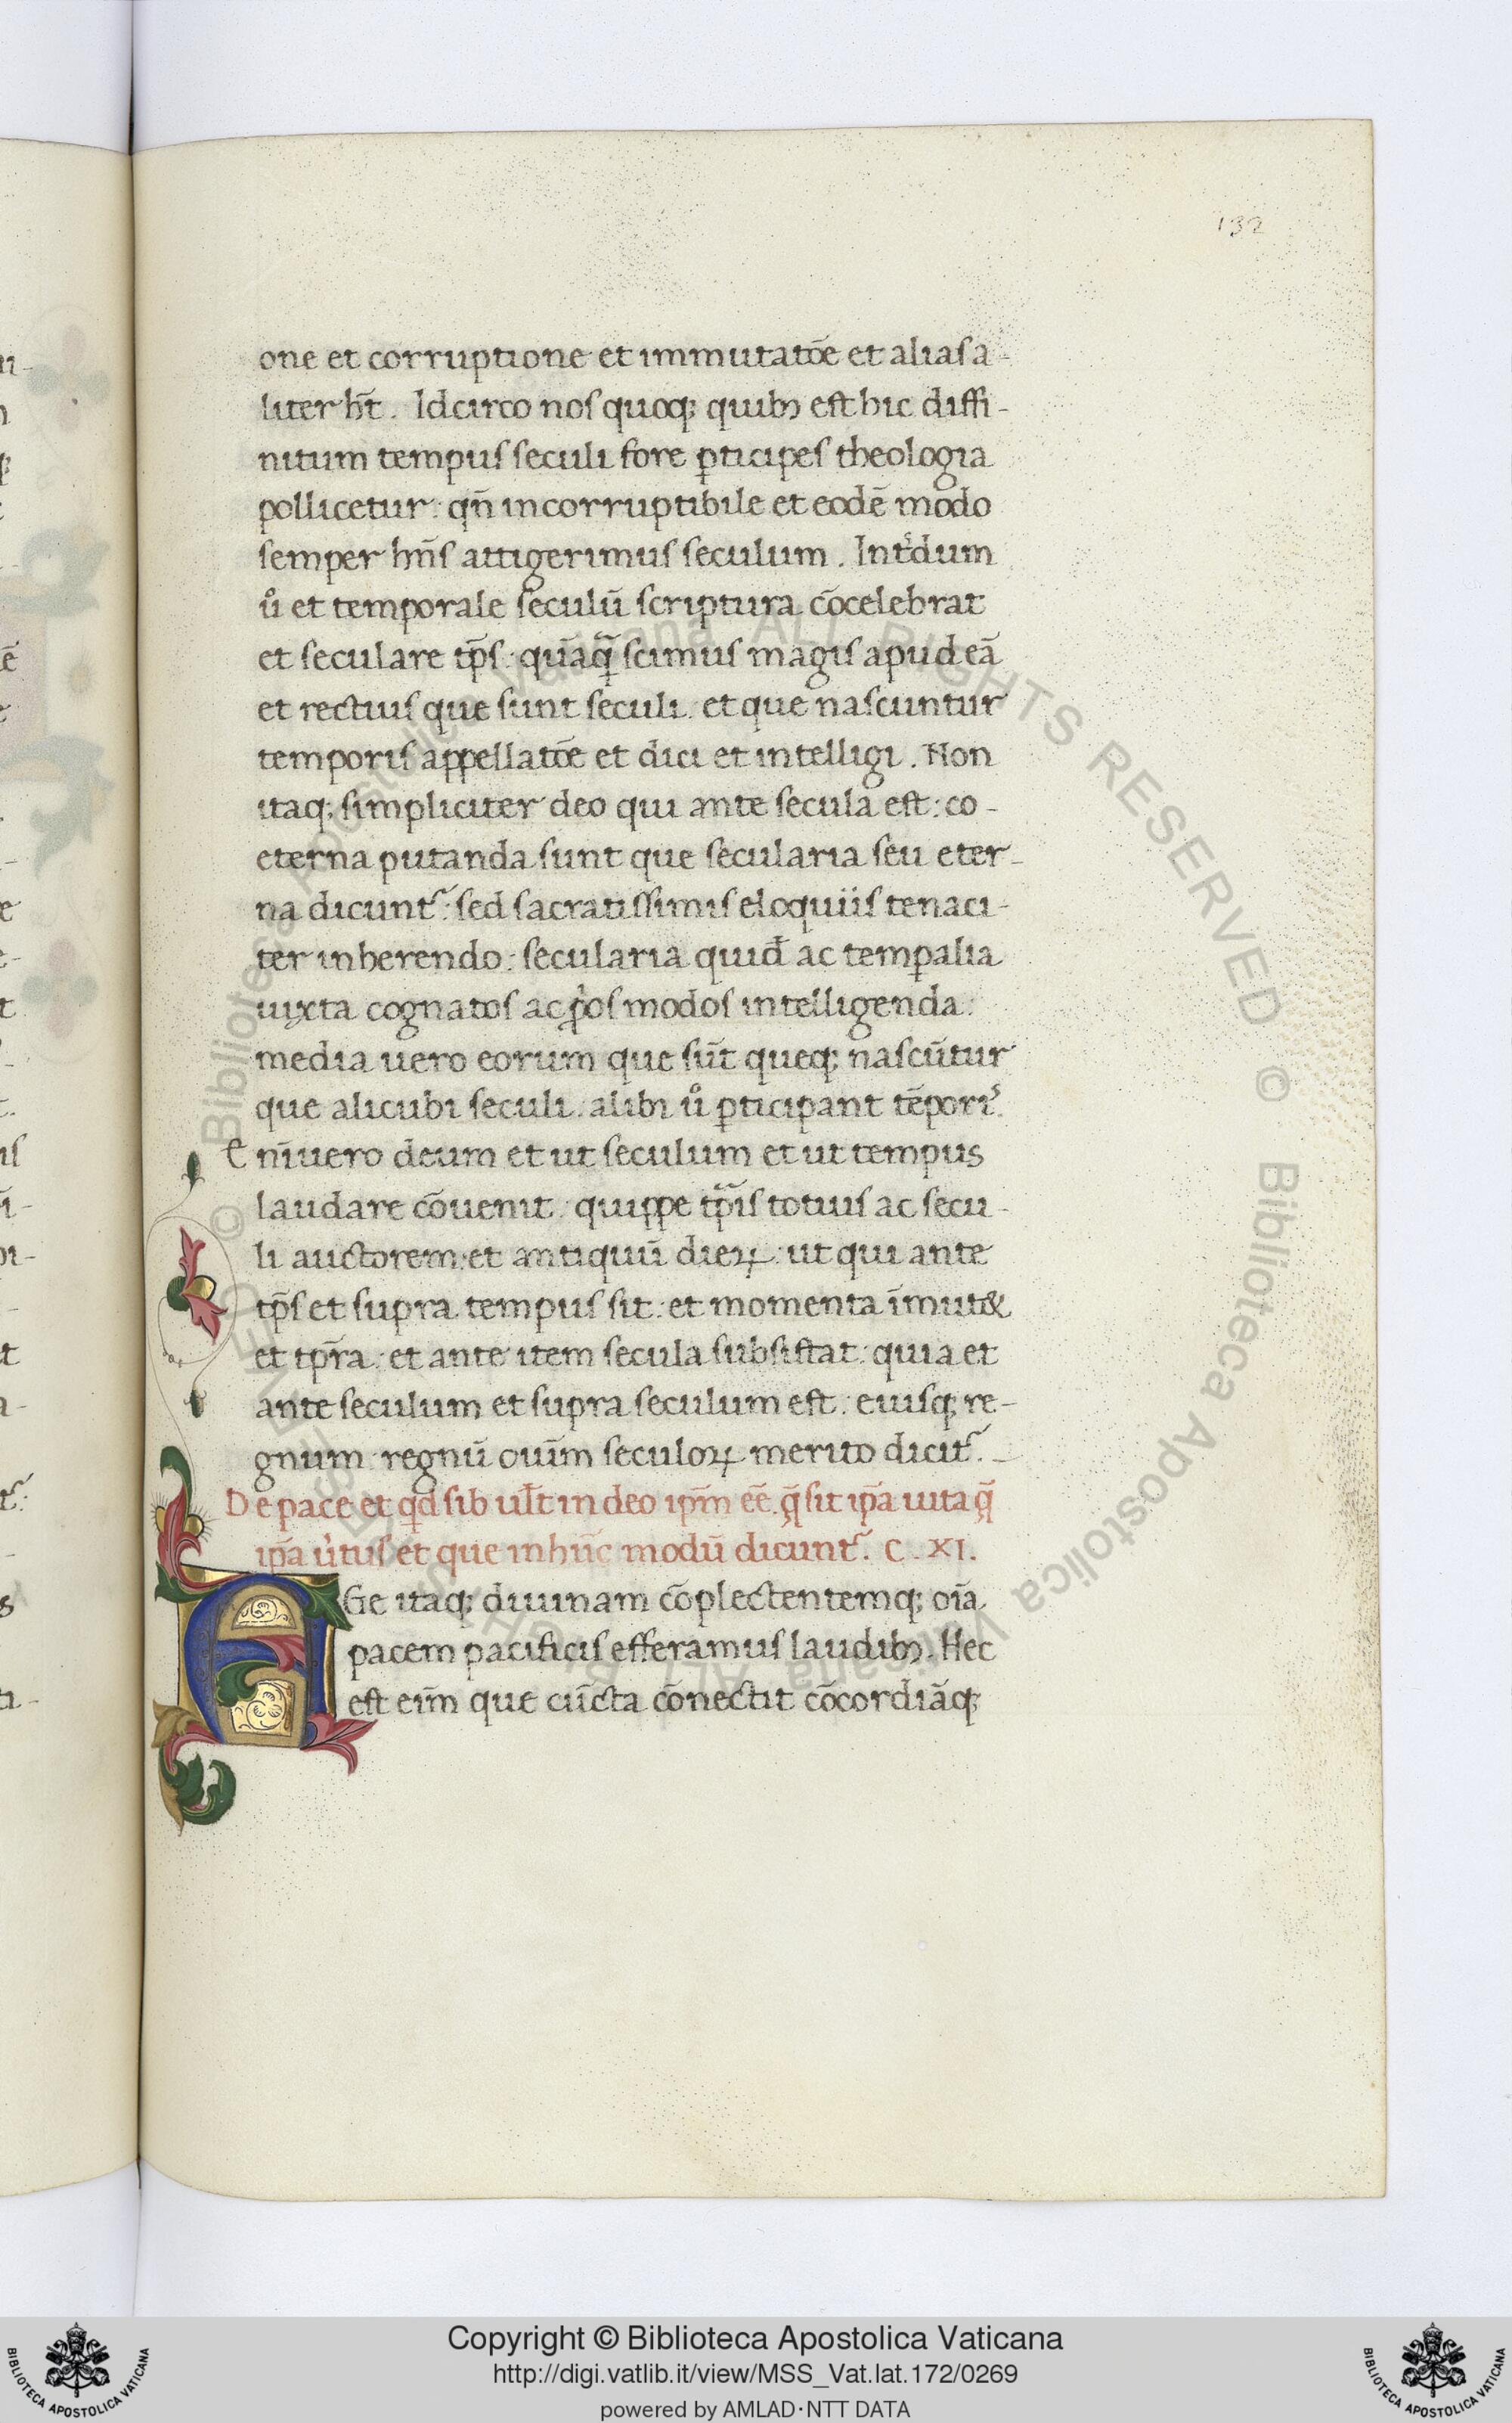 132
one et corruptione et immutatõe et alias a-
liter hñt. Idcirco nos quoq; quibꝫ est hic diffi-
nitum tempus seculi fore ꝑticipes theologia
pollicetur: qñ incorruptibile et eodẽ modo
semper hñs attigerimus seculum. Intͥdum
uͦ et temporale seculũ scriptura cõcelebrat
et seculare tp̃s: quãꝗ̃ scimus magis apud eã
et rectius que sunt seculi: et que nascuntur
temporis appellatõe et dici et intelligi. Non
itaq; simpliciter deo qui ante secula est: co-
eterna putanda sunt que secularia seu eter-
na dicuntʳ: sed sacratissimis eloquiis tenaci-
ter inherendo: secularia quid̃ ac temꝑalia
iuxta cognatos ac ꝓͥos modos intelligenda:
media uero eorum que sũt queq; nascũtur
que alicubi seculi: alibi uͦ ꝑticipant tẽporiˢ.
E nĩuero deum et ut seculum et ut tempus
laudare cõuenit: quippe tp̃is totius ac secu-
li auctorem: et antiquũ dieꝝ: ut qui ante
tp̃s et supra tempus sit: et momenta ĩmut&
et tp̃ra: et ante item secula subsistat: quia et
ante seculum et supra seculum est: eiusq; re-
gnum: regnũ ouĩm seculoꝝ merito dicitʳ.
De pace et qd̃ sib ult̃ in deo ip̃m eẽ. ꝗ̃ sit ip̃a uita ꝗ̃
ip̃a uͥtus et que in hũc modũ dicuntʳ. C. XI.
AGe itaq; diuinam cõplectentemq; oĩa
pacem pacificis efferamus laudibꝫ. Hec
est eĩm que cũcta cõnectit cõcordiãq;
Copyright © Biblioteca Apostolica Vaticana
http://digi.vatlib.it/view/MSS_Vat.lat.172/0269
powered by AMLAD·NTT DATA